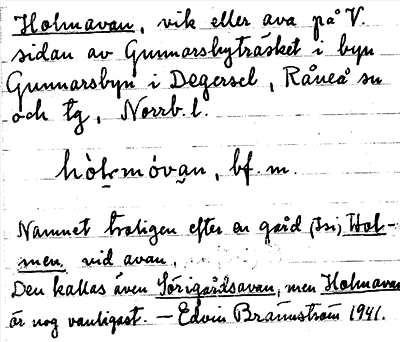 Holmavan, vik eller ava på V.
sidan av Gunnarsbyträsket i byn
Gunnarsbyn i Degersel, Råneå sn
och tg, Norrb. l.
hòlmóvan, bf. m.
Namnet troligen efter en gård, Hol-
men, vid avan.
Den kallas även Sörigårdsavan, men Holmavan
är nog vanligast. – Edvin Brännström 1941.